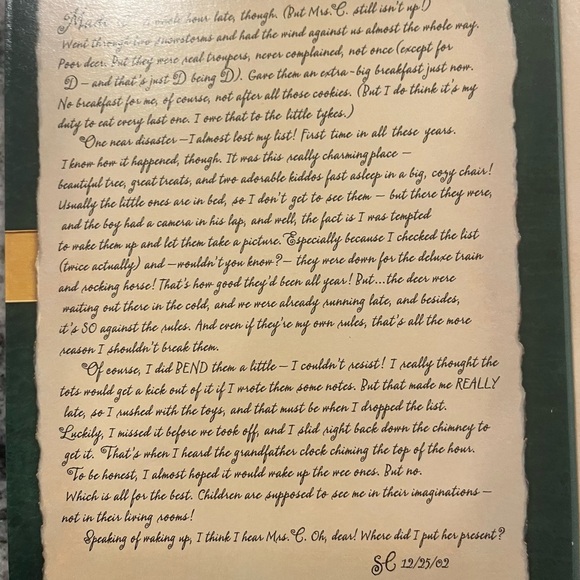 Made it a whole hour late, though. (But Mrs. C. still isn't up!)
Went through two snowstorms and had the wind against us almost the whole way.
Poor deer. But they were real troupers, never complained, not once (except for
D – and that's just D being D). Gave them an extra-big breakfast just now.
No breakfast for me, of course, not after all those cookies. (But I do think it's my
duty to eat every last one. I owe that to the little tykes.)
One near disaster – I almost lost my list! First time in all these years.
I know how it happened, though. It was this really charming place –
beautiful tree, great treats, and two adorable kiddos fast asleep in a big, cozy chair!
Usually the little ones are in bed, so I don't get to see them – but there they were,
and the boy had a camera in his lap, and well, the fact is I was tempted
to wake them up and let them take a picture. Especially because I checked the list
(twice actually) and – wouldn't you know? – they were down for the deluxe train
and rocking horse! That's how good they'd been all year! But...the deer were
waiting out there in the cold, and we were already running late, and besides,
it's SO against the rules. And even if they're my own rules, that's all the more
reason I shouldn't break them.
Of course, I did BEND them a little – I couldn't resist! I really thought the
tots would get a kick out of it if I wrote them some notes. But that made me REALLY
late, so I rushed with the toys, and that must be when I dropped the list.
Luckily, I missed it before we took off, and I slid right back down the chimney to
get it. That's when I heard the grandfather clock chiming the top of the hour.
To be honest, I almost hoped it would wake up the wee ones. But no.
Which is all for the best. Children are supposed to see me in their imaginations –
not in their living rooms!
Speaking of waking up, I think I hear Mrs. C. Oh, dear! Where did I put her present?
SC 12/25/02